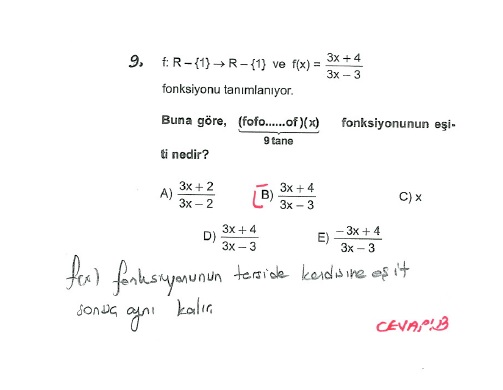 9. f: R – {1} → R – {1} ve f(x) = (3x + 4)/(3x – 3)
fonksiyonu tanımlanıyor.
Buna göre, (fofo......of)(x) fonksiyonunun eşi-
9 tane
ti nedir?
A) (3x + 2)/(3x – 2) B) (3x + 4)/(3x – 3) C) x
D) (3x + 4)/(3x – 3) E) (–3x + 4)/(3x – 3)
f(x) fonksiyonunun terside kendisine eşit
sonuç aynı kalır.
CEVAP:B